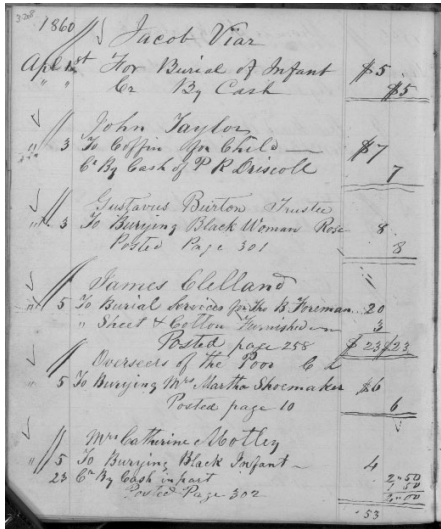 1860
Jacob Viar
Apl 1st For Burial of Infant $5
" " Cr By Cash $5
John Taylor
" 3 To Coffin for Child — $7
Cr By Cash of P R Driscoll 7
Gustavus Burton Trustee
" 3 To Burying Black Woman Rose 8
Posted Page 301 8
James Clelland
" 5 To Burial Services for Tho B Foreman 20
" Sheet & Cotton Furnished 3
Posted page 258 $23 $23
Overseers of the Poor
" 5 To Burying Mrs Martha Shoemaker $6
Posted page 10 6
Mrs Catharine Motley
" 5 To Burying Black Infant — 4
23 Cr By Cash in part 2.50
Posted Page 302
53